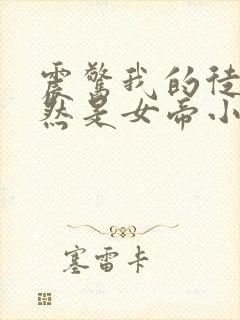 震惊我的徒
然是女帝小
塞雷卡